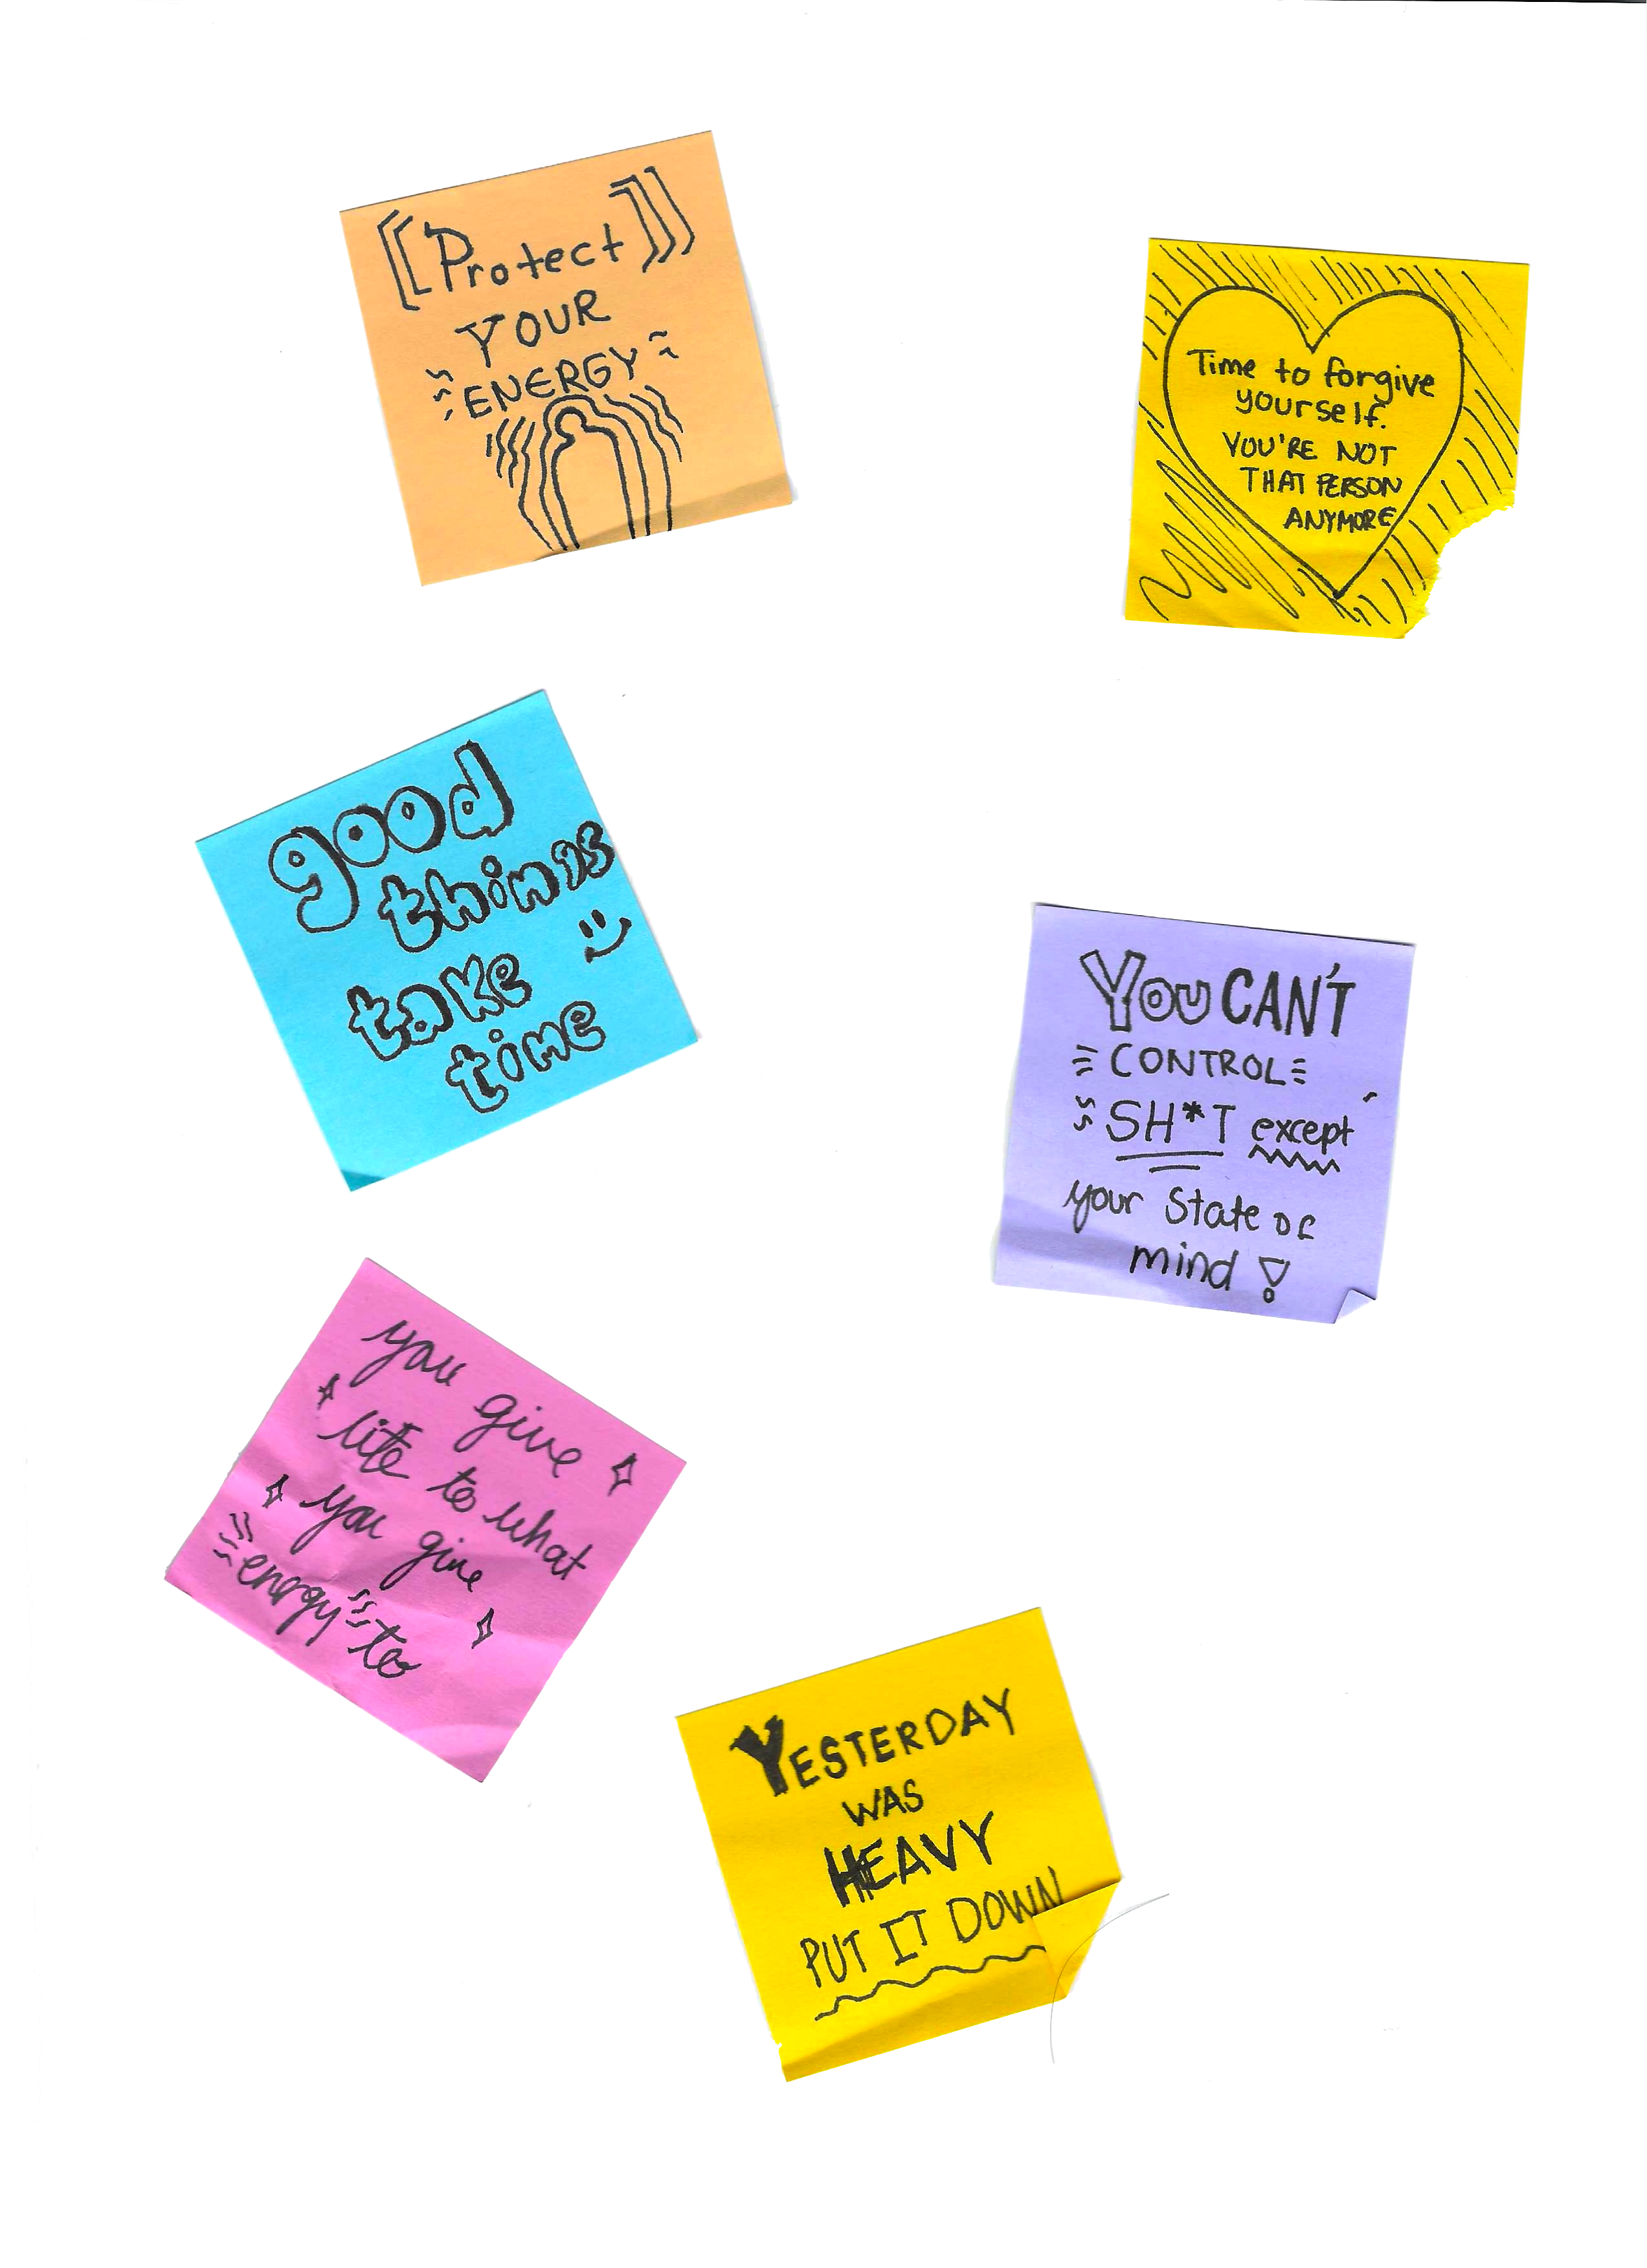 Protect
YOUR
ENERGY
Time to forgive
yourself.
YOU'RE NOT
THAT PERSON
ANYMORE
good
things
take
time
YOU CAN'T
CONTROL
SH*T except
your State of
mind !
you give
life to what
you give
energy to
YESTERDAY
WAS
HEAVY
PUT IT DOWN